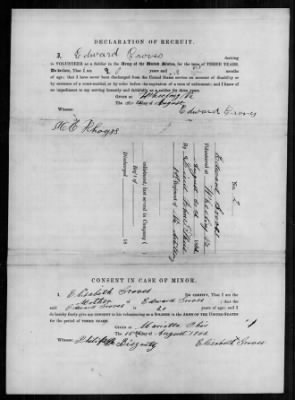 DECLARATION OF RECRUIT.
I, Edward Groves desiring
to VOLUNTEER as a Soldier in the Army of the United States, for the term of THREE YEARS,
Do declare, That I am years and months
of age; that I have never been discharged from the United States service on account of disability or
by sentence of a court-martial, or by order before the expiration of a term of enlistment; and I know of
no impediment to my serving honestly and faithfully as a soldier for three years.
Given at Wheeling Va
The August
Witness:
Edward Groves
No. 2
Edward Groves
Volunteered at Wheeling Va
August 1862
By
Regiment of
enlistment; last served in Company (
) Reg't of
Discharged 18
CONSENT IN CASE OF MINOR.
I, Elizabeth Groves Do CERTIFY, That I am the
Mother of Edward Groves; that the
said Edward Groves is years of age; and I
do hereby freely give my CONSENT to his volunteering as a SOLDIER in the ARMY OF THE UNITED STATES
for the period of THREE YEARS.
Given at Marietta Ohio
The 15 August 1862
Witness:
Elizabeth Groves